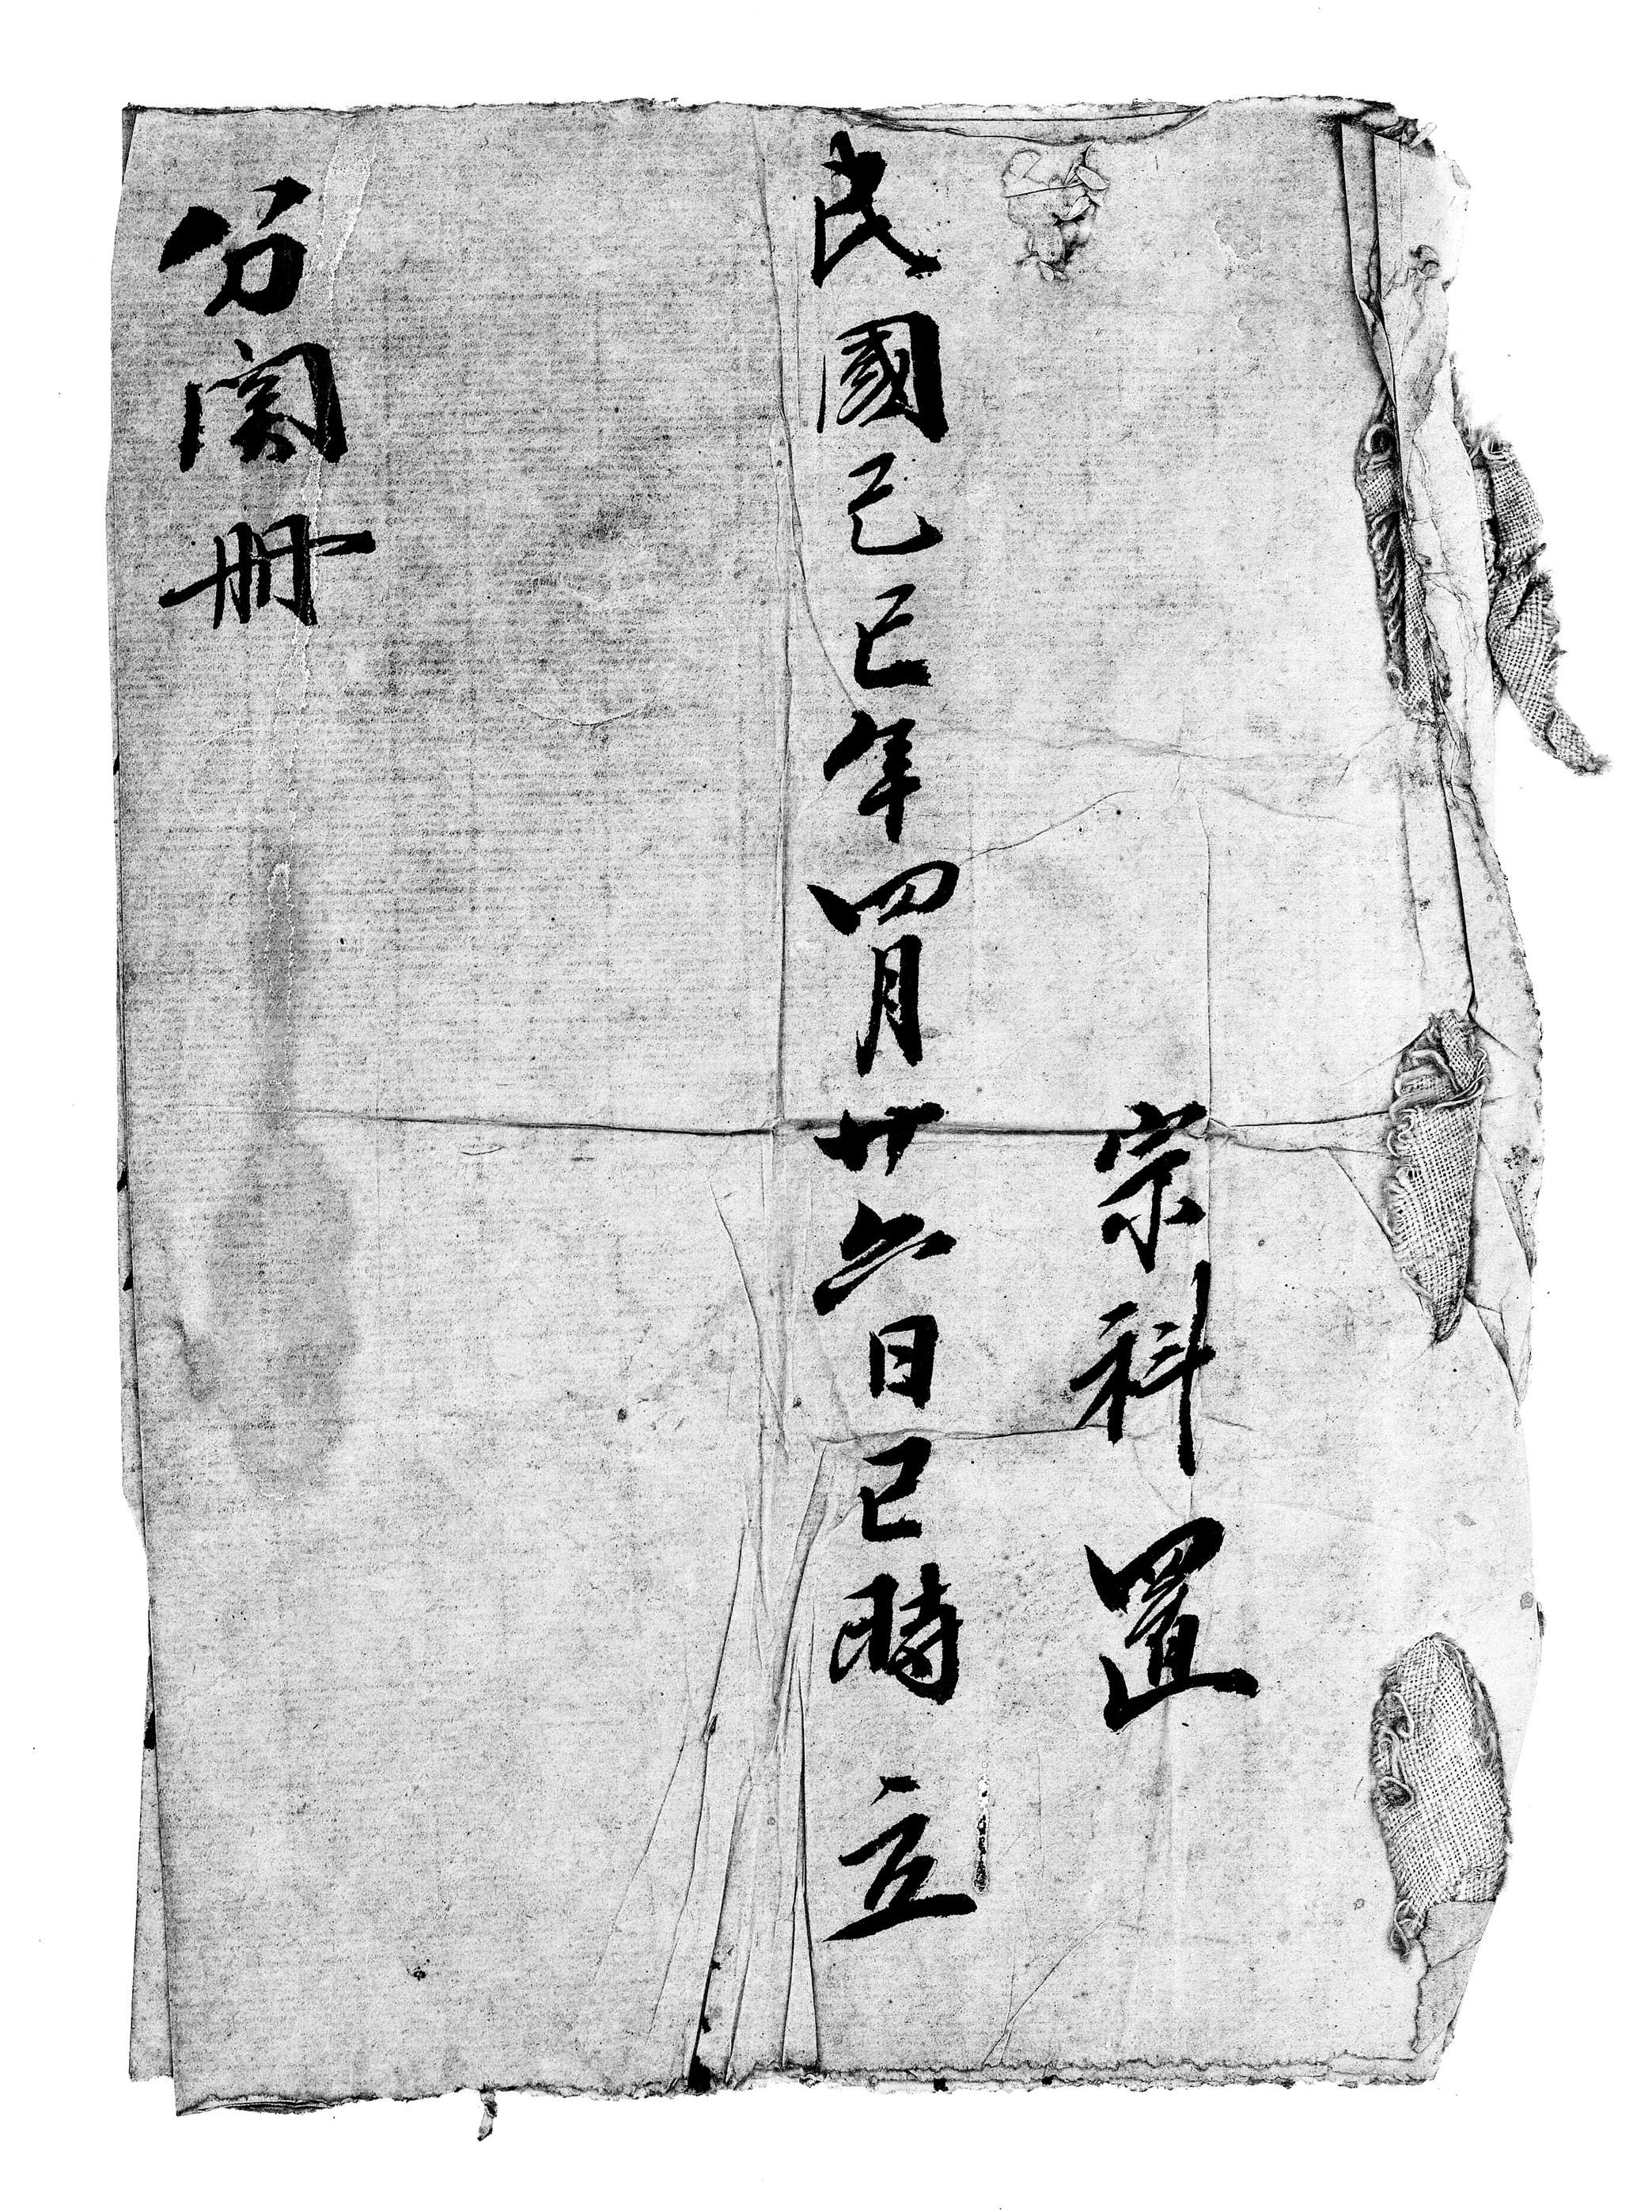 宗科置
民國己巳年四月廿六日巳時立
分関冊